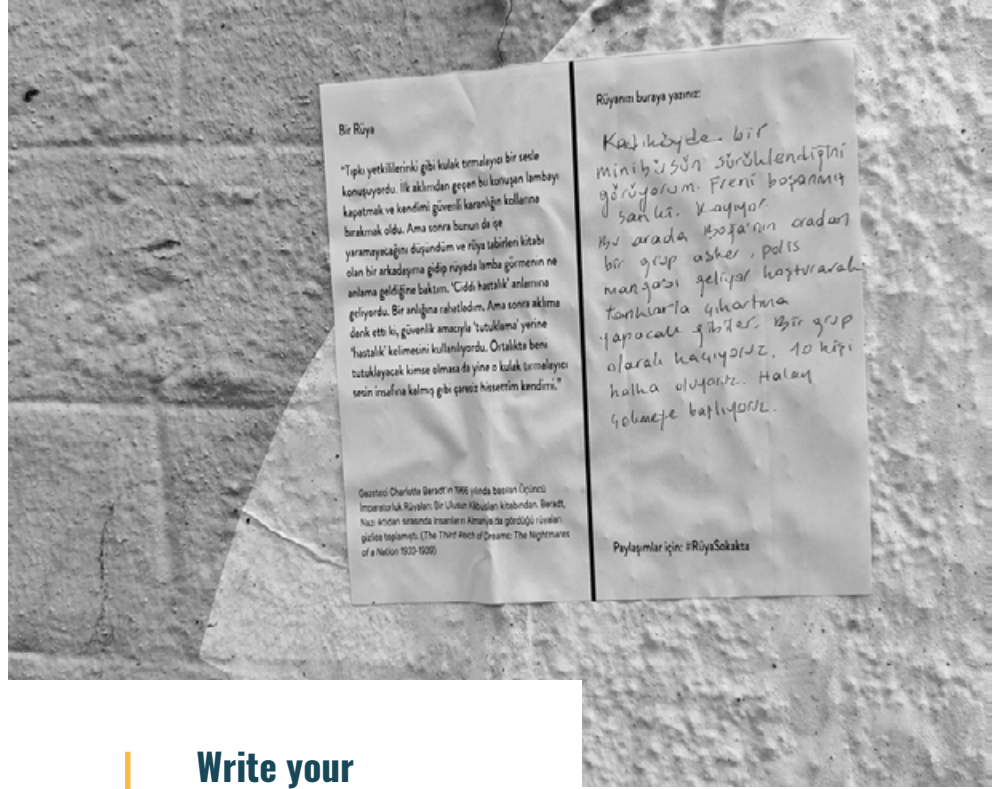 Bir Rüya
"Tıpkı yetkililerinki gibi kulak tırmalayıcı bir sesle
konuşuyordu. İlk aklımdan geçen bu konuşan lambayı
kapatmak ve kendimi güvenli karanlığın kollarına
bırakmak oldu. Ama sonra bunun da işe
yaramayacağını düşündüm ve rüya tabirleri kitabı
olan bir arkadaşıma gidip rüyada lamba görmenin ne
anlama geldiğine baktım. 'Ciddi hastalık' anlamına
geliyordu. Bir anlığına rahatladım. Ama sonra aklıma
dank etti ki, güvenlik amacıyla 'tutuklama' yerine
'hastalık' kelimesini kullanılıyordu. Ortalıkta beni
tutuklayacak kimse olmasa da yine o kulak tırmalayıcı
sesin insafına kalmış gibi çaresiz hissettim kendimi."
Gazeteci Charlotte Beradt'ın 1966 yılında basılan Üçüncü
İmparatorluk Rüyaları: Bir Ulusun Kâbusları kitabından. Beradt,
Nazi iktidarı sırasında insanların Almanya'da gördüğü rüyaları
gizlice toplamıştı. (The Third Reich of Dreams: The Nightmares
of a Nation 1933-1939)
Rüyanızı buraya yazınız:
Kadıköyde bir
minibüsün sürüklendiğini
görüyorum. Freni boşanmış
sanki. Kayıyor.
Bu arada Boğa'nın oradan
bir grup asker, polis
mangası geliyor koşturarak
tanklarla çıkartma
yapacak gibiler. Bir grup
olarak kaçıyoruz. 10 kişi
halka oluyoruz. Halay
çekmeye başlıyoruz.
Paylaşımlar için: #RüyaSokakta
Write your